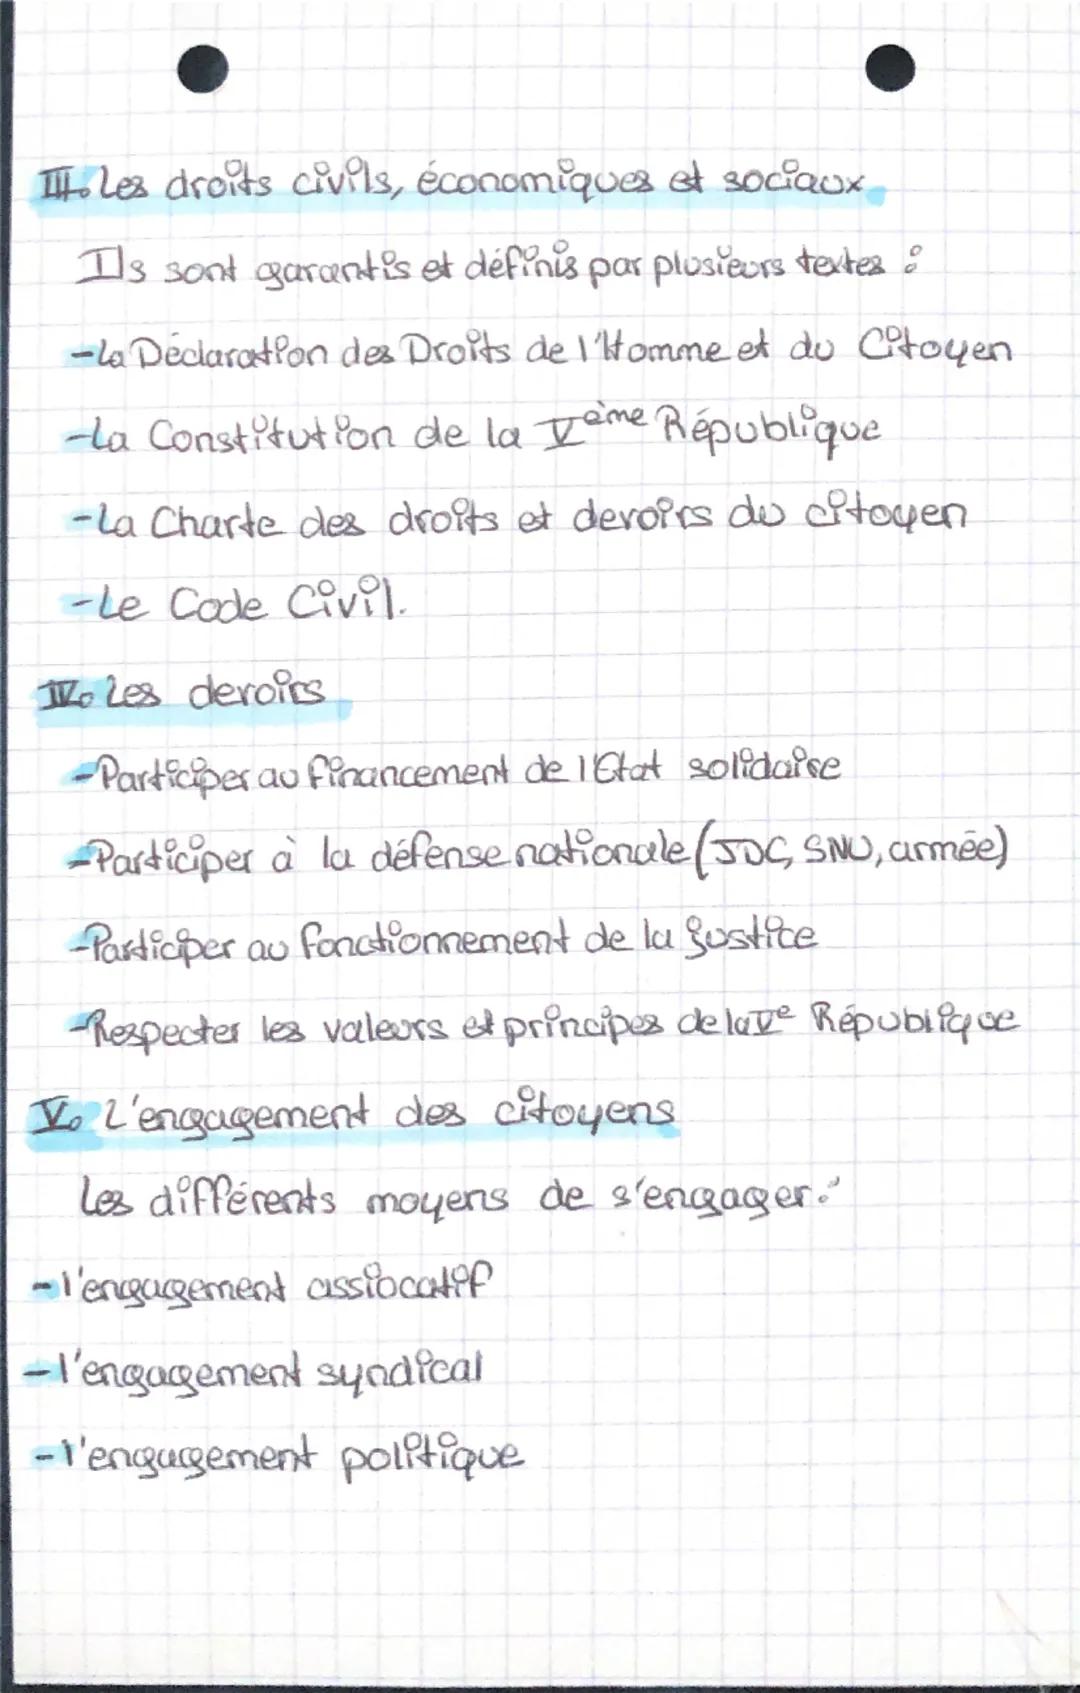 III. Les droits civils, économiques et sociaux
Ils sont garantis et définis par plusieurs textes :
-La Déclaration des Droits de l'Homme et du Citoyen
-La Constitution de la Vème République
-La Charte des droits et devoirs du citoyen
-Le Code Civil.
IV. Les devoirs
-Participer au financement de l'Etat solidaire
-Participer à la défense nationale (JDC, SNU, armée)
-Participer au fonctionnement de la justice
-Respecter les valeurs et principes de la Ve République
V. L'engagement des citoyens
Les différents moyens de s'engager :
-l'engagement assiocatif
-l'engagement syndical
-l'engagement politique